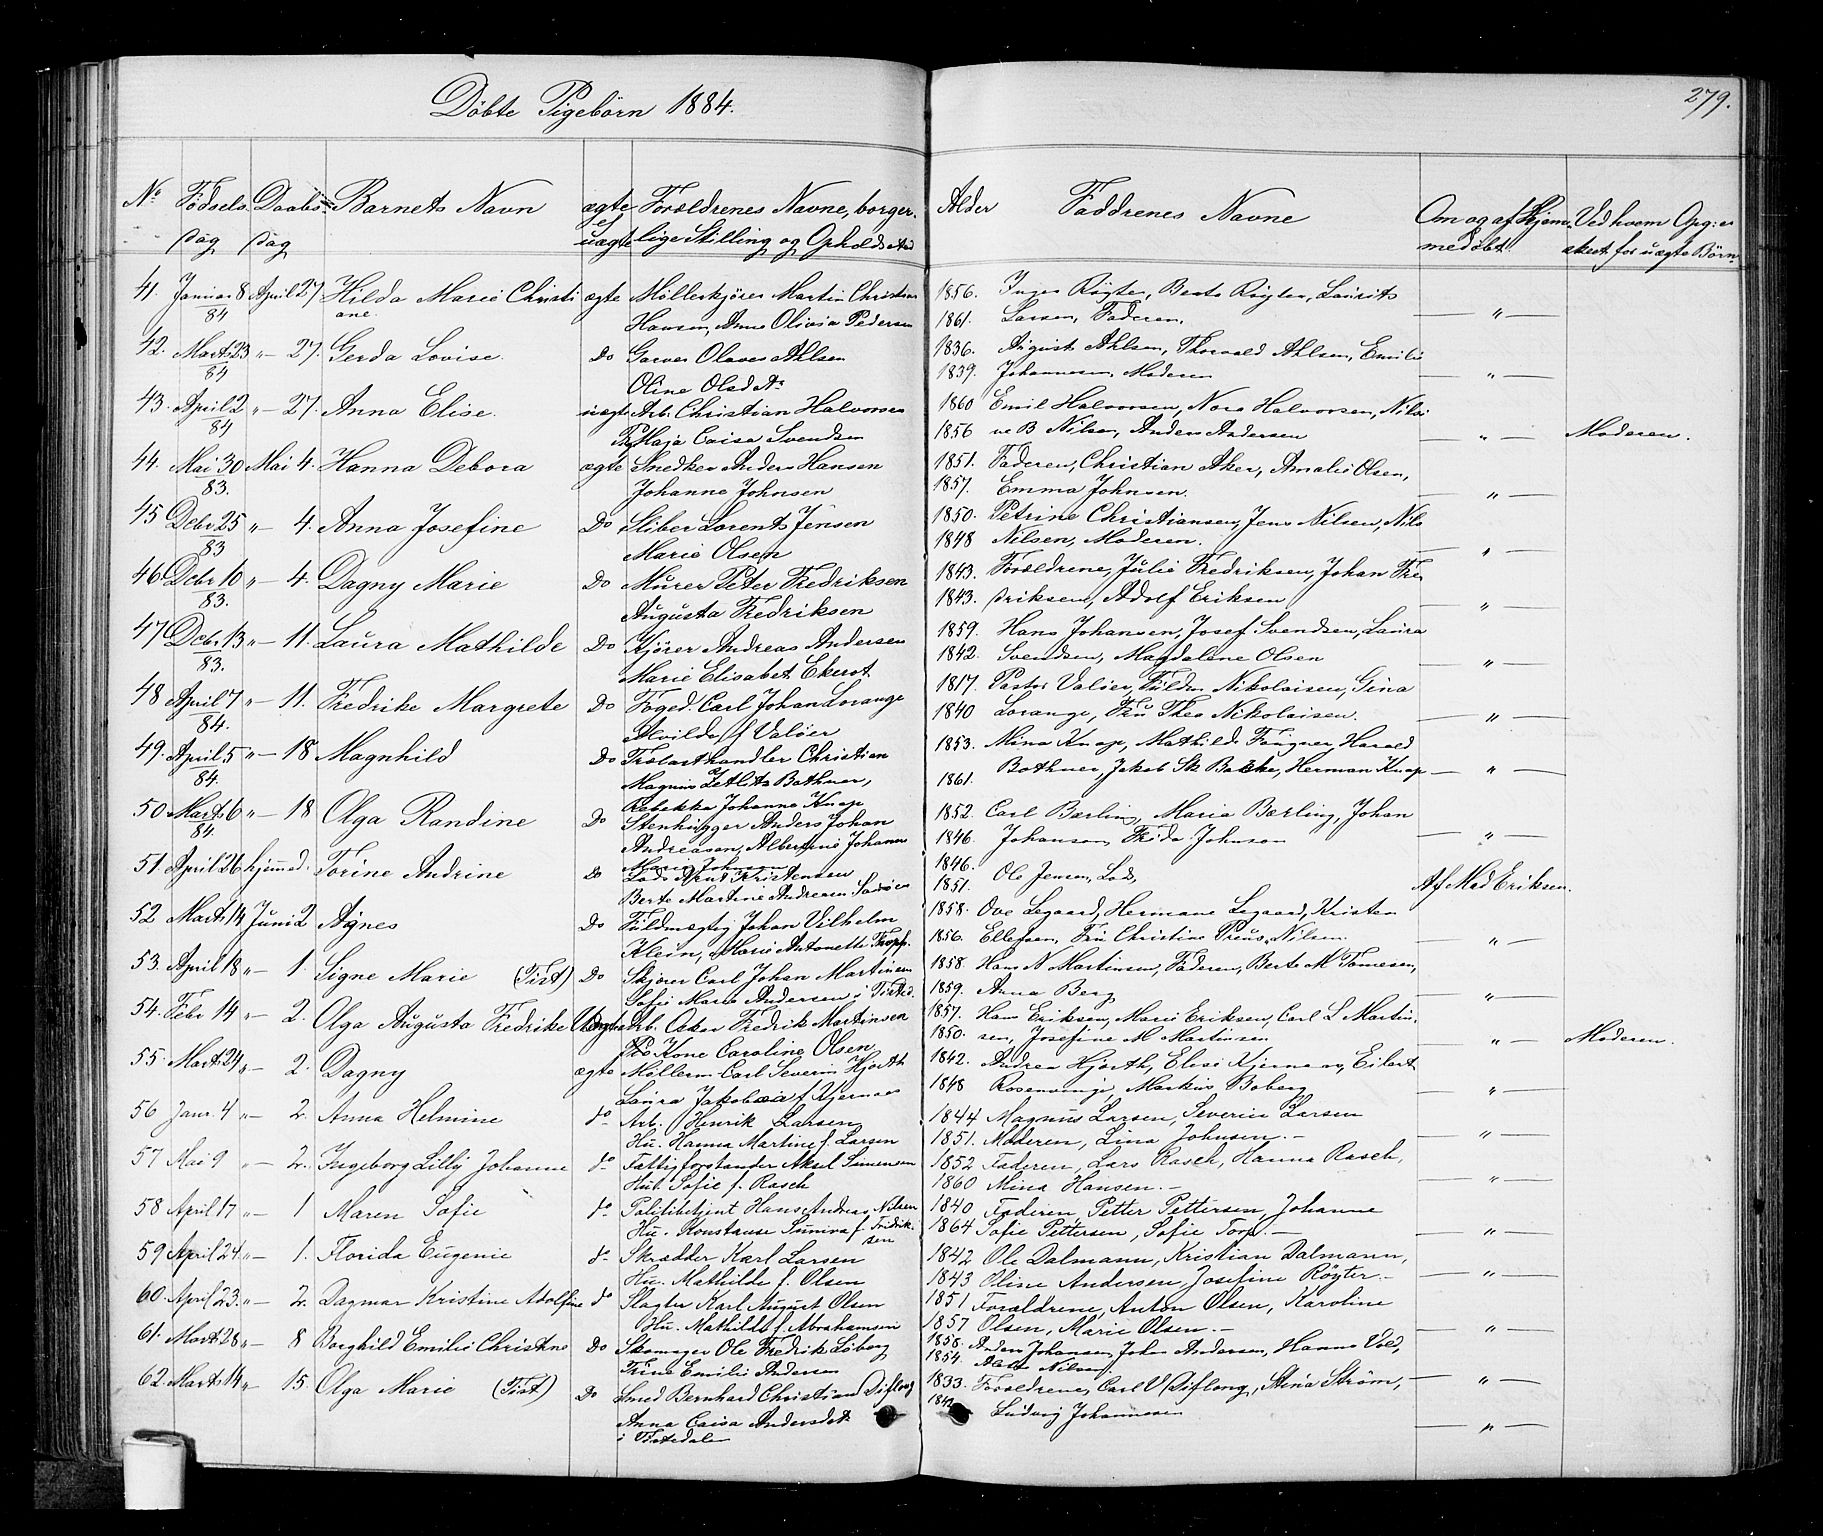 Döbte Pigebörn 1884.
279.
No Födsels Daabs Barnets Navn ægte Forældrenes Navne, borger- Alder Faddrenes Navne Om og af Hjem- Ved hvem Opg: er
dag dag uægte lige Stilling og Opholdsted medöbt skeet for uægte Börn
41. Januar 8 April 27. Hilda Marie Christi ægte Möllerkjörer Martin Christian 1856. Inger Röyter, Berte Röyter, Laurits
84 ane. Hansen, Anne Olivia Pedersen 1861. Larsen, Faderen. — " —
42. Marts 23 " — 27. Gerda Lovise. Do Garver Olaves Ahlsen 1836. August Ahlsen, Thorvald Ahlsen, Emilie
84 Oline Olsdtr 1839. Johannesen, Moderen — " —
43. April 2 " — 27. Anna Elise. uægte Arb. Christian Halvorsen 1860 Emil Halvorsen, Nora Halvorsen, Nilsi
84 Pg Maja Caisa Svendsen 1856 ne B Nilsen, Anders Andersen — " — Moderen.
44. Mai 30 Mai 4. Hanna Debora ægte Snedker Anders Hansen 1851. Faderen, Christian Aker, Amalie Olsen,
83. Johanne Johnsen 1857. Emma Johnsen. — " —
45 Dcbr 25 " — 4. Anna Josefine Do Sliber Lorents Jensen 1850. Petrine Christiansen, Jens Nilsen, Nils
83 Marie Olsen 1848 Nilsen, Moderen. — " —
46. Dcbr 10 " — 4. Dagny Marie Do Murer Peter Fredriksen 1843. Forældrene, Julie Fredriksen, Johan Fre
83. Augusta Fredriksen 1843. driksen, Adolf Eriksen — " —
47 Dcbr 13 " — 11. Laura Mathilde Do Kjörer Andreas Andersen 1859. Hans Johansen, Josef Svendsen, Laura
83. Marie Elisabet Ekerot 1842. Svendsen, Magdalene Olsen — " —
48 April 7 " — 11. Fredrike Margrete Do Foged. Carl Johan Lorange 1817. Pastor Valöer, Fuldm Nikolaisen, Gina
84. Alvilde f Valöer 1840 Lorange, Fru Thea Nikolaisen. — " —
49. April 5 " — 18 Magnhild Do Trælasthandler Christian 1853. Mina Knap, Mathilde Fougner, Harald
84. Magnus Zetlits Bothner, 1861. Bothner, Jakob Sk Bache, Herman Knap — " —
Rebekka Johanne Knap
50 Marts 6 " — 18 Olga Randine Do Stenhugger Anders Johan 1852. Carl Bærling, Maria Bærling, Johan
84. Andreasen, Albertine Johanne 1846. Johansen, Frida Johnson — " —
Marie Johnsen
51. April 26 hjemmed. Torine Andrine Do Lods Arnt Kristensen 1846. Ole Jensen, Lods,
Berte Martine Andreasen 1851. Af Mad Eriksen.
52 Marts 14 Juni 2 Agnes Do Fuldmægtig Johan Vilhelm 1858. Ove Legaard, Hermane Legaard, Kristen
Klein, Marie Antonette Thopf. 1856. Ellefsen, Fru Christine Preus, Nilsen. — " —
53. April 18 " — 1. Signe Marie (Tist) Do Skjörer Carl Johan Martinsen 1858. Hans N Martinsen, Faderen, Berte M Tomesen,
Sofie Marie Andersen i Tisted. 1859. Anna Berg — " —
54. Febr 14 " — 2. Olga Augusta Fredrike Uægte Arb. Oskar Fredrik Martinsen 1857. Hans Eriksen, Marie Eriksen, Carl L Martin,
Kone Caroline Olsen 1850. sen, Josefine M Martinsen — " — Moderen.
55. Marts 24 " — 2. Dagny ægte Möllerm Carl Severin Hjorth 1842. Andrea Hjorth, Elise Kjernæs, Eilert
Laura Jakobæa f Kjernæs 1848 Rosenvinge, Markus Boberg — " —
56 Janr. 4 " — 2. Anna Helmine do Arb. Henrik Larsen 1844 Magnus Larsen, Severin Larsen
Hu. Hanna Martine f. Larsen 1851. Moderen, Lina Johnsen. — — " —
57 Mai 9 " — 2. Ingeborg Lilly Johanne do Fattigforstander Aksel Simensen 1852 Faderen, Lars Rasch, Hanna Rasch,
Hu. Sofie f. Rasch 1860 Mina Hansen. — — " —
58 April 17 " — 1 Maren Sofie do Politibetjent Hans Andreas Nilsen 1840 Faderen, Petter Pettersen, Johanne
Hu. Konstanse Sunniva f. Fredrik- 1864 Sofie Pettersen, Sofie Torp. — — " —
sen
59 April 24. " — 1. Florida Eugenie do Skrædder Karl Larsen 1842 Ole Dalmann, Kristian Dalmann,
Hu. Mathilde f. Olsen 1843 Oline Andersen, Josefine Röyter. — — " —
60. April 23. " — 2. Dagmar Kristine Adolfine do Slagter Karl August Olsen 1851 Forældrene, Anton Olsen, Karoline
Hu. Mathilde f. Abrahamsen 1857 Olsen, Marie Olsen. — — " —
61. Marts 28 " — 8 Borghild Emilie Christine Do Skomager Ole Fredrik Löberg 1858. Anders Johansen, John Andersen, Hanne Vold,
Trine Emilie Andersen 1854. Nilsen — " —
62. Marts 14 " — 15. Olga Marie (Tist) Do Smed Bernhard Christian Disslong 1833. Forældrene, Carl V Disslong, Stina Ström,
Anna Caisa Andersdtr 1842 Ludvig Johannesen — " —
i Tistedalen